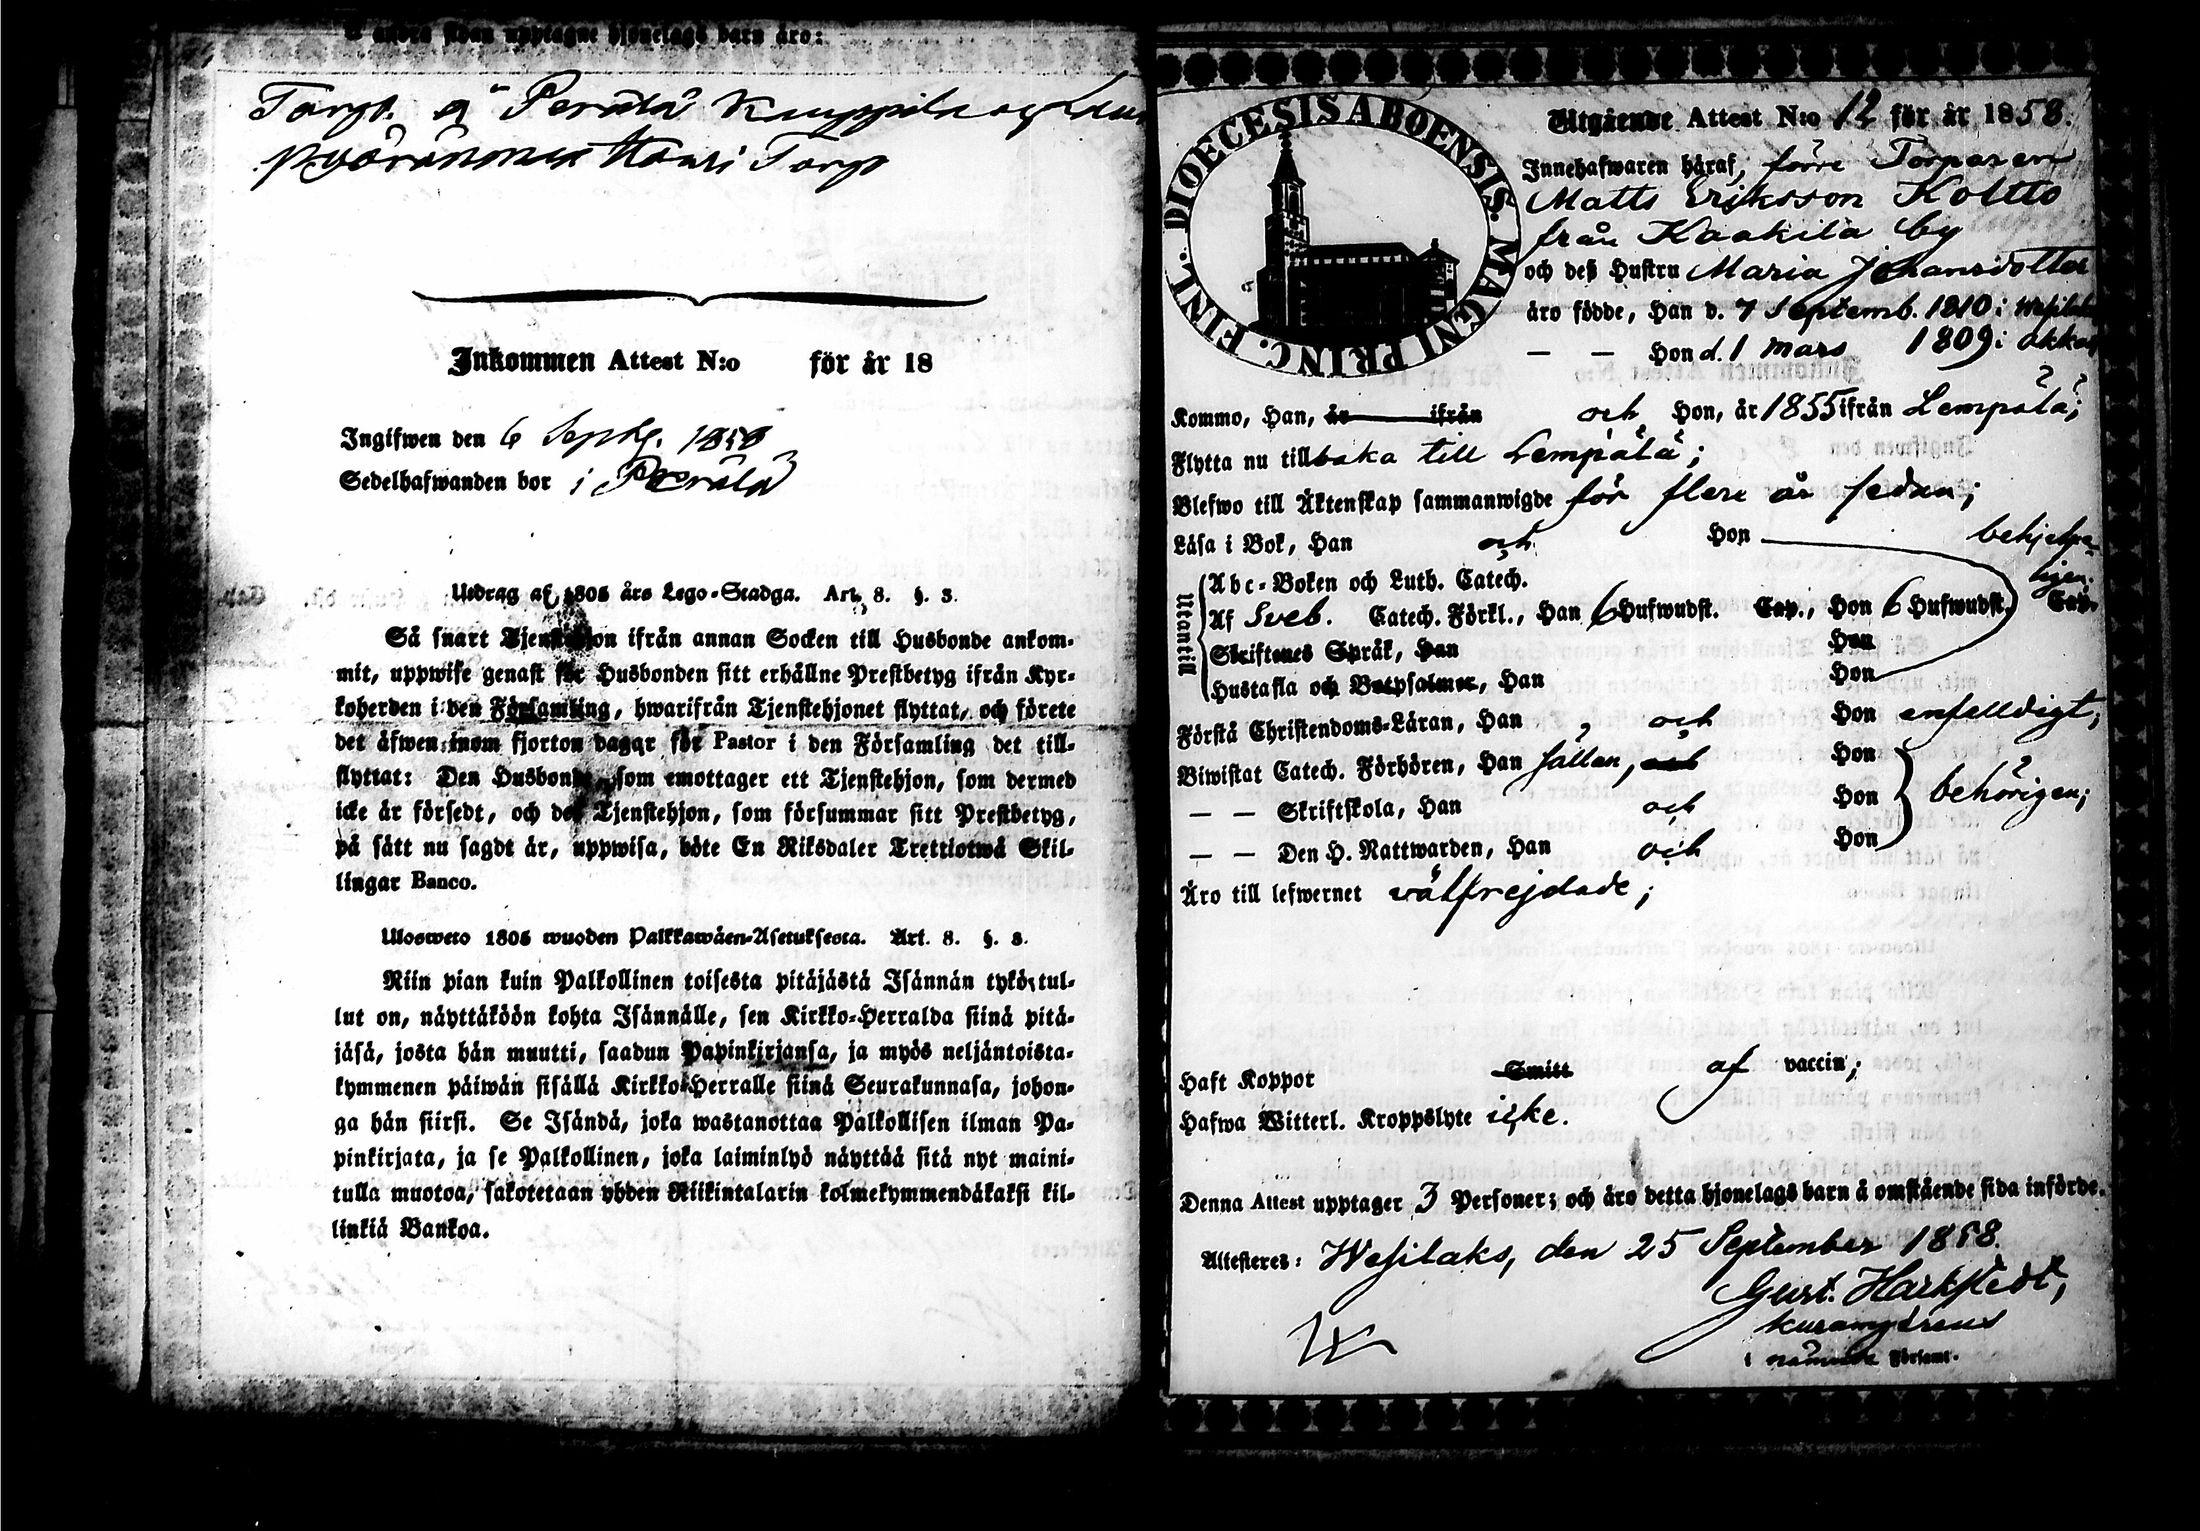 å andra sidan upptagne hjonelags barn äro:
Torp. å Perälä Kuppila og
Haari Torp
Inkommen Attest N:o för år 18
Ingifwen den 6 Septbr. 1858
Sedelhafwanden bor i Perälä
Utdrag af 1805 års Lego-Stadga. Art. 8. §. 3.
Så snart Tjenstehjon ifrån annan Socken till Husbonde ankom-
mit, uppwise genast för Husbonden sitt erhållne Prestbetyg ifrån Kyr-
koherden i den Församling, hwarifrån Tjenstehjonet flyttat, och förete
det äfwen inom fjorton dagar för Pastor i den Församling det till-
flyttat: Den Husbonde, som emottager ett Tjenstehjon, som dermed
icke är försedt, och det Tjenstehjon, som försummar sitt Prestbetyg,
på sätt nu sagdt är, uppwisa, böte En Riksdaler Trettiotwå Skil-
lingar Banco.
Ulosweto 1805 wuoden Palkkawäen-Asetuksesta. Art. 8. §. 3.
Niin pian kuin Palkollinen toisesta pitäjästä Isännän tykö tul-
lut on, näyttäköön kohta Isännälle, sen Kirkko-Herralda siinä pitä-
jäsä, josta hän muutti, saadun Papinkirjansa, ja myös neljäntoista-
kymmenen päiwän sisällä Kirkko-Herralle siinä Seurakunnasa, johon-
ga hän siirsi. Se Isändä, joka wastanottaa Palkollisen ilman Pa-
pinkirjata, ja se Palkollinen, joka laiminlyö näyttää sitä nyt maini-
tulla muotoa, sakotetaan yhden Riikintalarin kolmekymmendäkaksi kil-
linkiä Bankoa.
FINL. DIOECESIS ABOENSIS. MAGNI PRINC.
Utgående Attest N:o 12 för år 1858.
Innehafwaren häraf, förre Torparen
Matts Eriksson Koltto
från Kaakila by
och deß Hustru Maria Johansdotter
äro födde, Han d. 7 Septemb. 1810 i Wesilaks
— — Hon d. 1 Mars 1809 i Akkas
Kommo, Han, år ifrån och Hon, år 1855 ifrån Lempälä;
Flytta nu tillbaka till Lempälä;
Blefwo till Äktenskap sammanwigde för flere år sedan;
Läsa i Bok, Han och Hon behjelpe-
ligen.
Utantill
Abc-Boken och Luth. Catech.
Af Sveb. Catech. Förkl., Han 6 Hufwudst. Cap., Hon 6 Hufwudst. Cap.
Skriftenes Språk, Han Hon
Hustafla och Botpsalmer, Han Hon
Förstå Christendoms-Läran, Han och Hon enfelldigt;
Biwistat Catech. Förhören, Han sällan, och Hon
— — Skriftskola, Han och Hon behörigen;
— — Den H. Nattwarden, Han och Hon
Äro till lefwernet wälfrejdade;
Haft Koppor Smitt af vaccin;
Hafwa Witterl. Kroppslyte icke.
Denna Attest upptager 3 Personer; och äro detta hjonelags barn å omstående sida införde.
Attesteres: Wesilaks, den 25 September 1858.
Gust. Harkstedt,
i nämnde Församl.